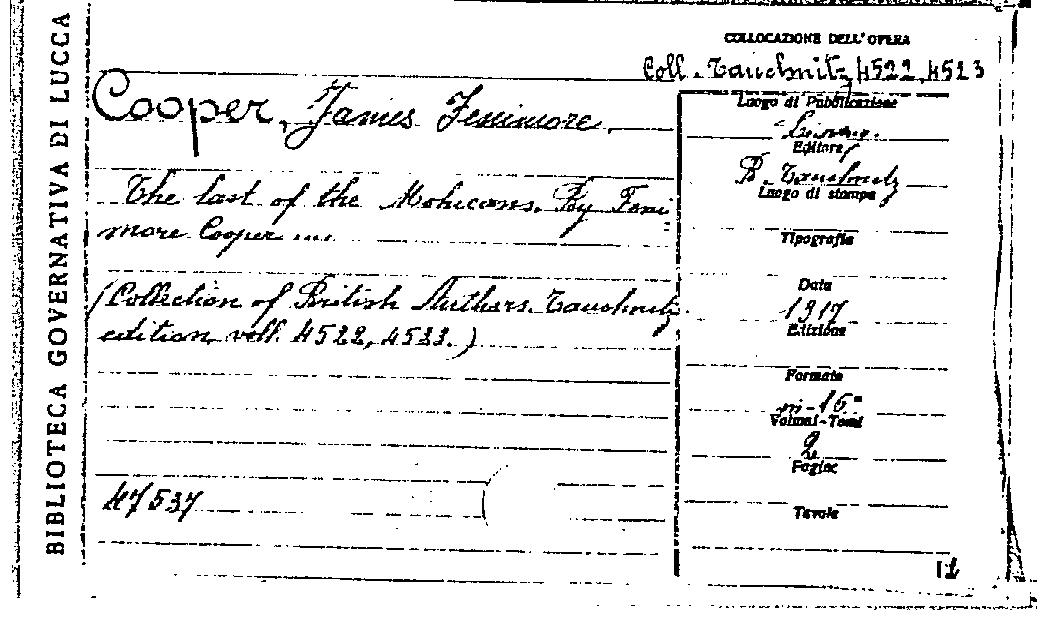 BIBLIOTECA GOVERNATIVA DI LUCCA
COLLOCAZIONE DELL'OPERA
Coll. Tauchnitz 4522, 4523
Cooper, James Fenimore
The last of the Mohicans. By Feni-
more Cooper ....
(Collection of British Authors. Tauchnitz
edition voll. 4522, 4523.)
47537
Luogo di Pubblicazione
Editore
B. Tauchnitz
Luogo di stampa
Tipografia
Data
1917
Edizione
Formato
in-16°
Volumi-Tomi
2
Pagine
Tavole